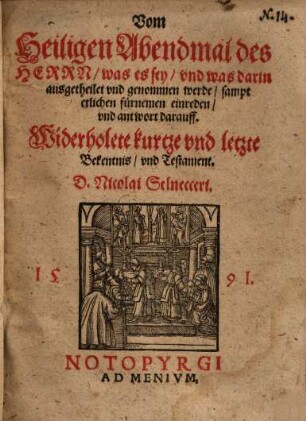 N. 14.
Vom
Heiligen Abendmal des
HERRN / was es sey / vnd was darin
ausgetheilet vnd genommen werde / sampt
etlichen fürnemen einreden /
vnd antwort darauff.
Widerholete kurtze vnd letzte
Bekentnis / vnd Testament.
D. Nicolai Selnecceri.
15 91.
NOTOPYRGI
AD MENIVM,